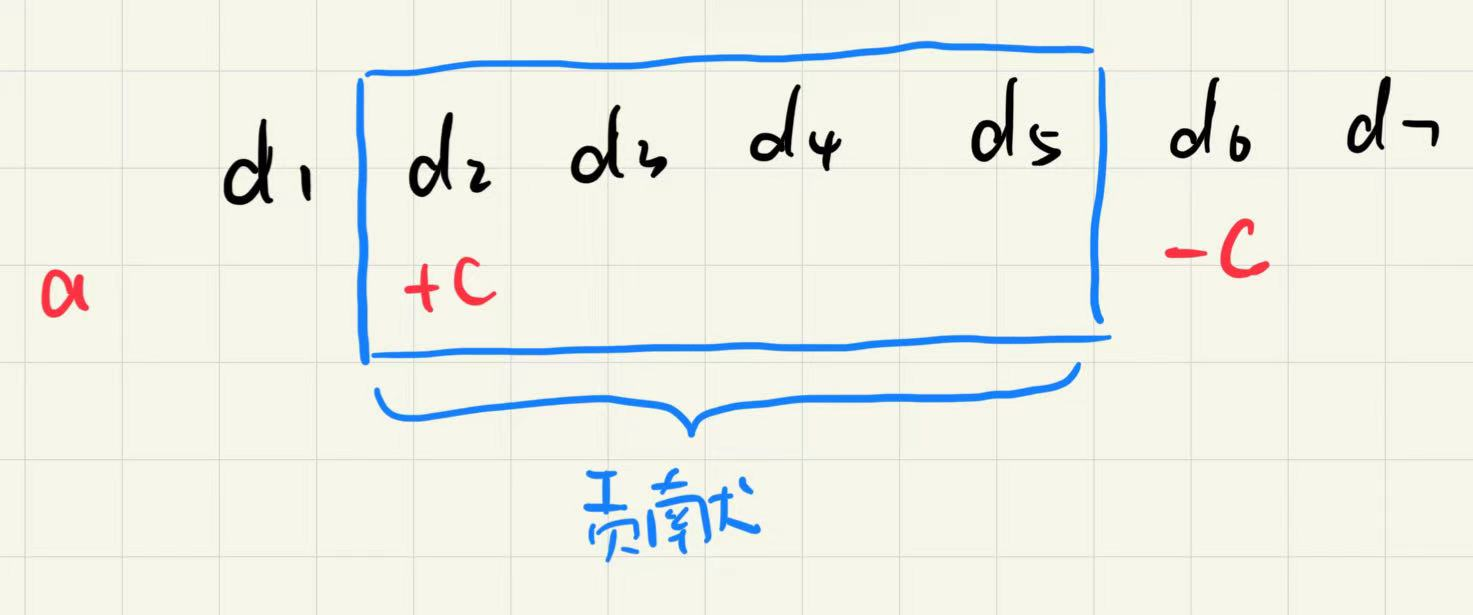 d1 d2 d3 d4 d5 d6 d7
a +C -C
贡献